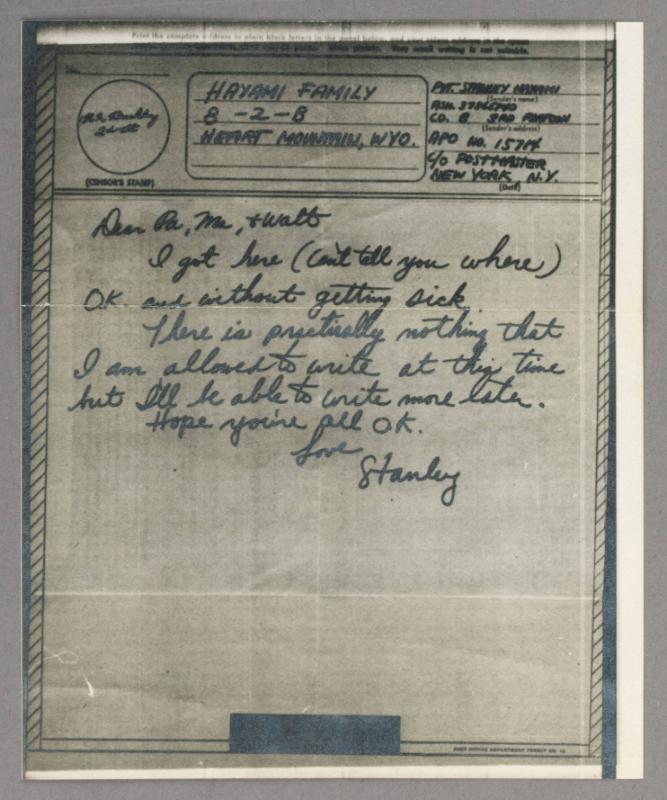 Print the complete address in plain block letters in the panel below, and your return address in the space
Very small writing is not suitable.
No.
HAYAMI FAMILY
8-2-B
HEART MOUNTAIN, WYO.
(CENSOR'S STAMP)
PVT. STANLEY HAYAMI
(Sender's name)
ASN.
CO. B 3RD PLATOON
(Sender's address)
APO NO. 15714
C/O POSTMASTER
NEW YORK N.Y.
(Date)
Dear Pa, Ma, + Walt
I got here (can't tell you where)
OK. and without getting sick.
There is practically nothing that
I am allowed to write at this time
but I'll be able to write more later.
Hope you're all OK.
Love
Stanley
POST OFFICE DEPARTMENT PERMIT NO.